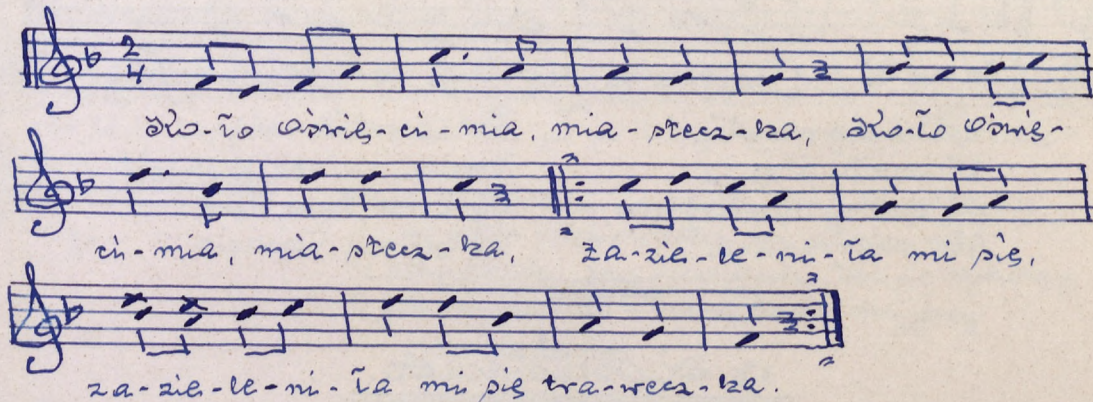 2/4
Oko-ło Oświę-ci-mia, mia-stecz-ka, Oko-ło Oświę-
ci-mia, mia-stecz-ka, Za-zie-le-ni-ła mi się,
za-zie-le-ni-ła mi się tra-wecz-ka.